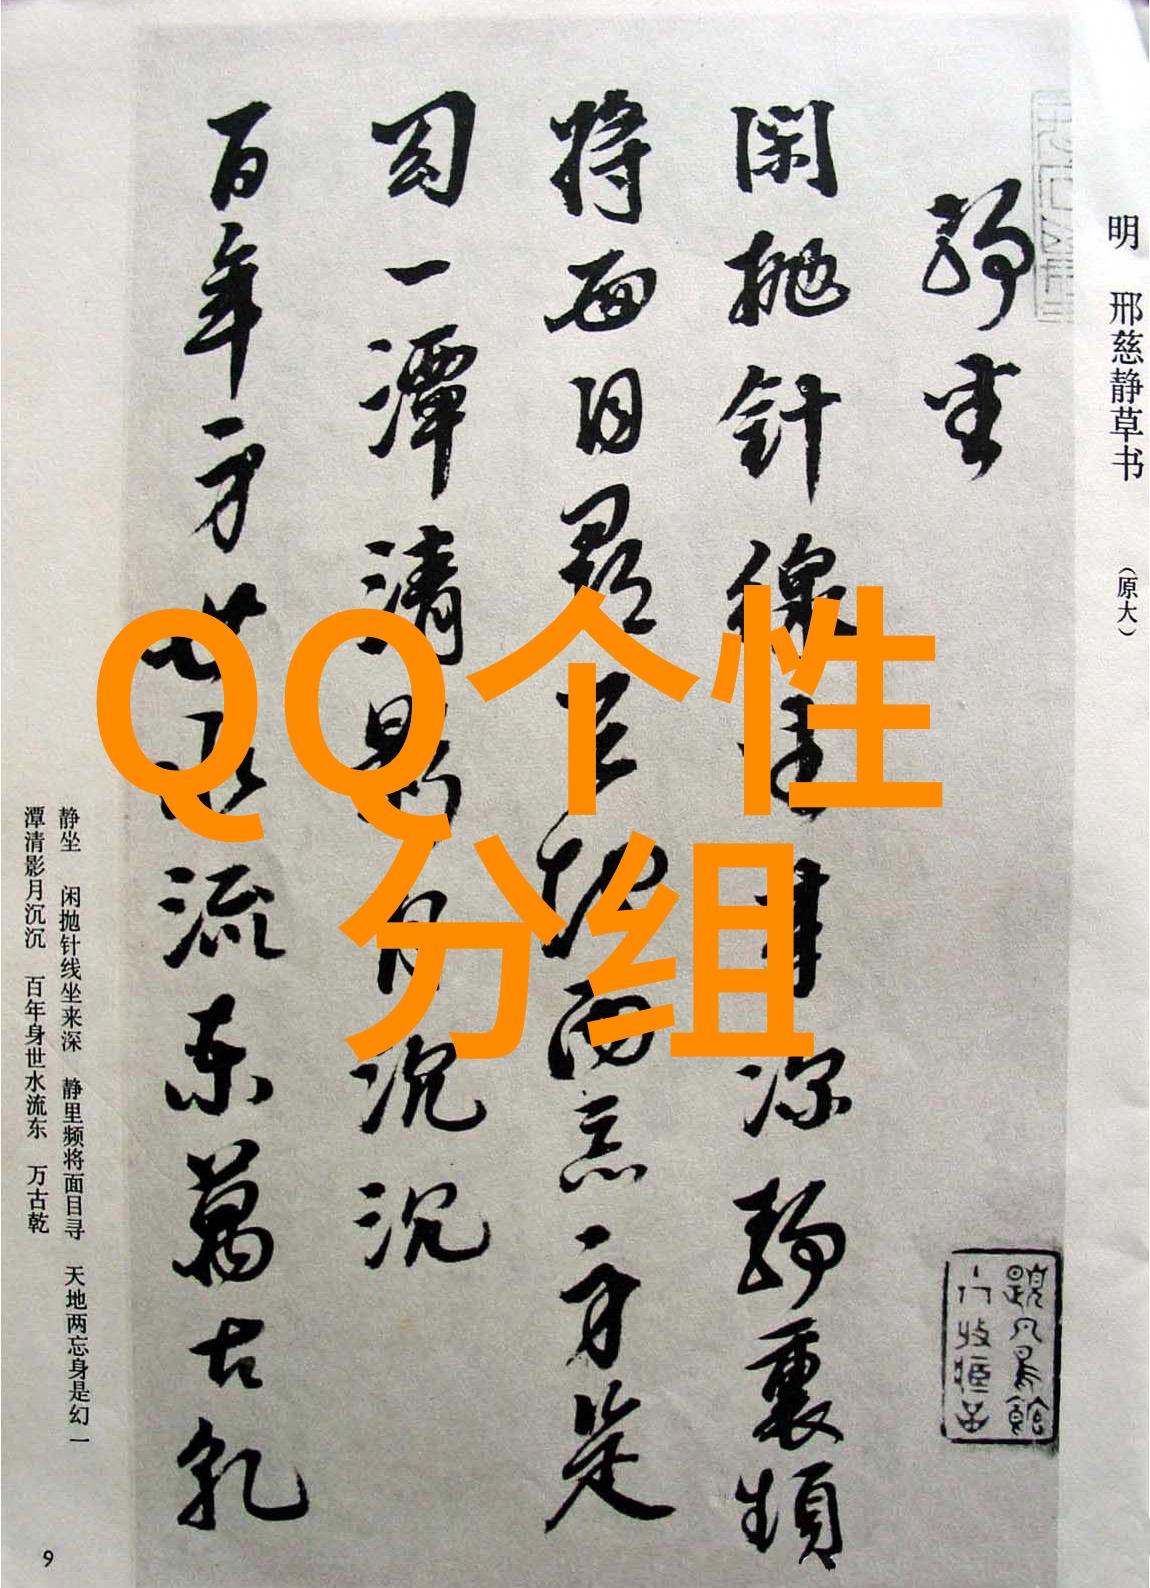 明 邢慈静草书 （原大）
静坐
闲抛针线坐来深静里频
将面目寻天地两忘身是
幻一潭清影月沉沉
百年身世水流东万古乾
QQ个性
分组
静坐 闲抛针线坐来深 静里频将面目寻 天地两忘身是幻一
潭清影月沉沉 百年身世水流东 万古乾
9